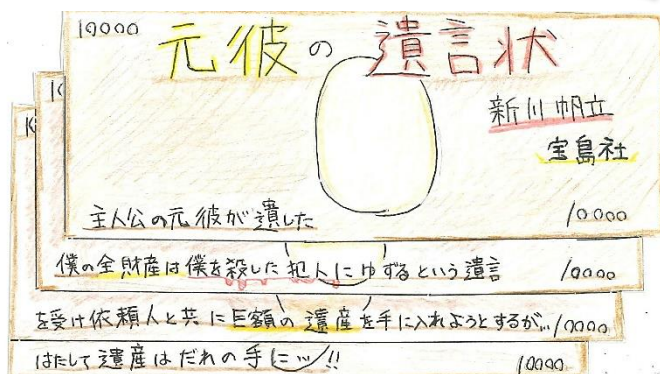 10000
元彼の遺言状
新川帆立
宝島社
主人公の元彼が遺した
10000
僕の全財産は僕を殺した犯人にゆずるという遺言
10000
を受け依頼人と共に巨額の遺産を手に入れようとするが…
10000
はたして遺産はだれの手にッ!!
10000